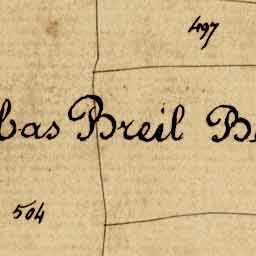 497
bas Breil
504